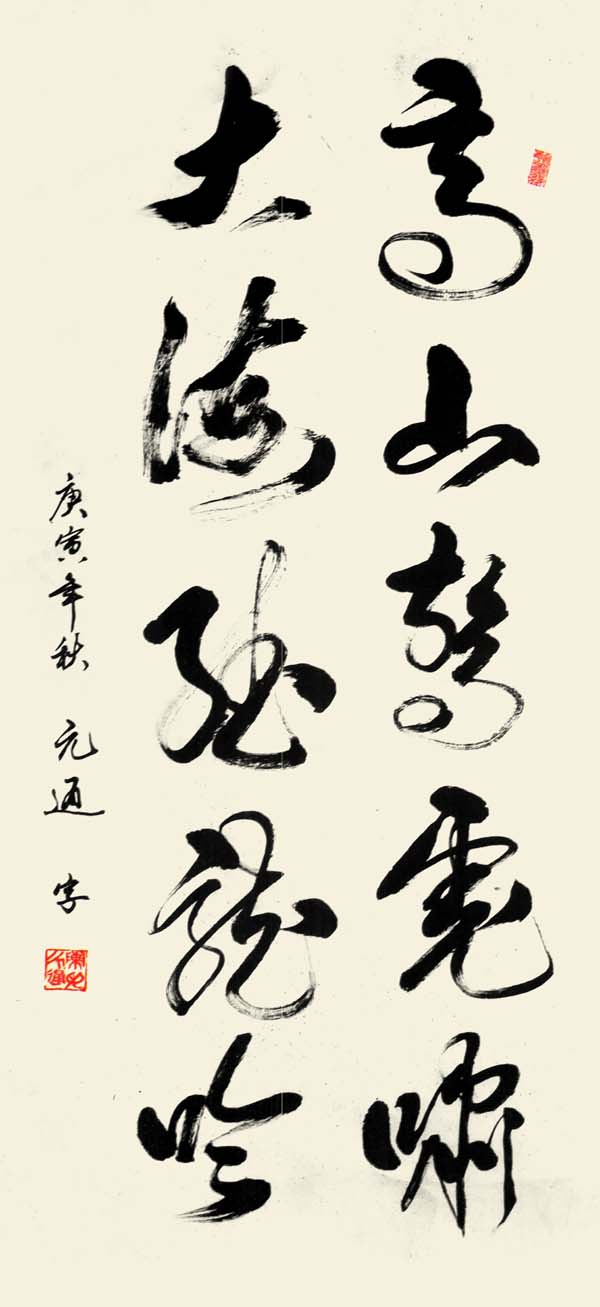 高山驚虎嘯
大海龍吟
庚寅年秋 元通 字